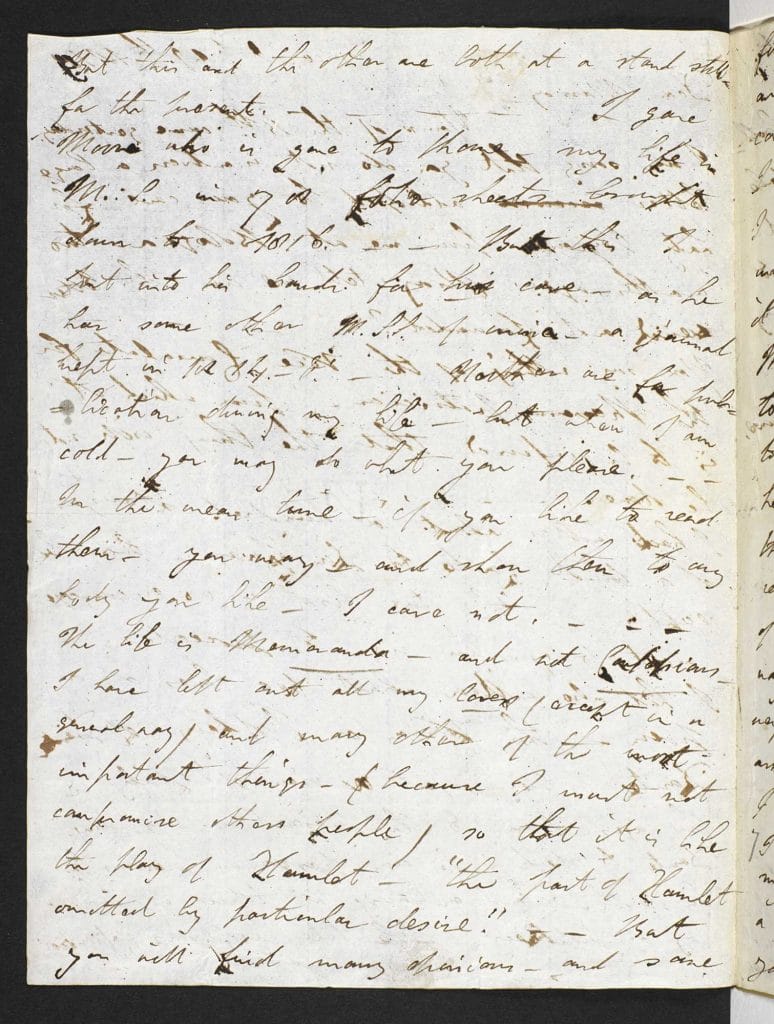 But this and the other are both at a stand still
for the present. — — — — — I gave
Moore who is gone to Rome — my life in
M.S. in 78 folio sheets brought
down to 1816. — — But this I
put into his hands for his care — as he
has some other M.S.S. of mine — a journal
kept in 1814 — &c. — Neither are for pub-
=lication during my life — but when I am
cold — you may do what you please. — —
In the mean time — if you like to read
them — you may — and show them to any
body you like — I care not. — — —
The life is Memoranda — and not Confessions —
I have left out all my loves (except in a
general way) and many other of the most
important things — (because I must not
compromise other people) so that it is like
the play of Hamlet — "the part of Hamlet
omitted by particular desire." — — But
you will find many opinions — and some